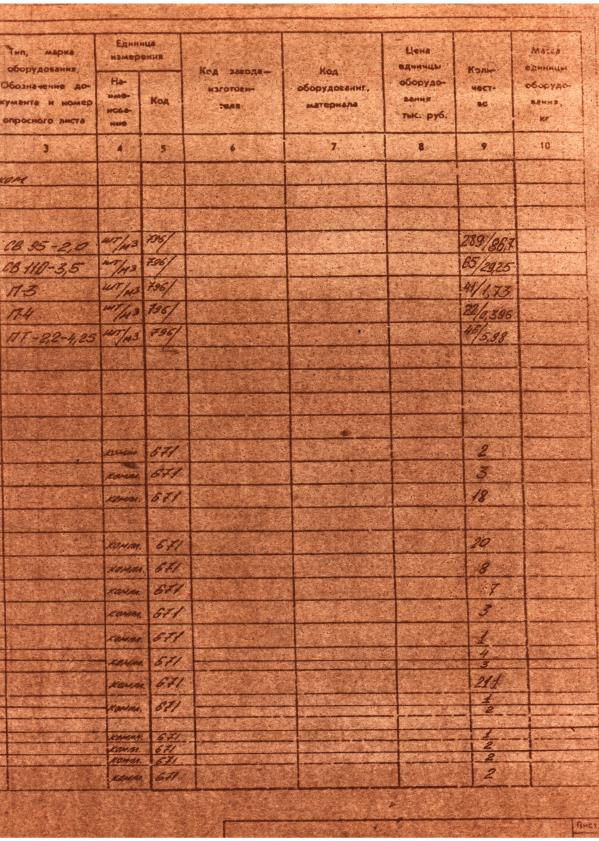 Тип, марка оборудования. Обозначение документа и номер опросного листа
Единица измерения
Наименование
Код
Код завода-изготовителя
Код оборудования, материала
Цена единицы оборудования тыс. руб.
Количество
Масса единицы оборудования, кг
3 4 5 6 7 8 9 10
ком
СВ 95-2,0 шт/м3 796/ 289/86,7
СВ 110-3,5 шт/м3 796/ 65/29,25
П-3 шт/м3 796/ 41/1,73
П-4 шт/м3 796/ 22/0,396
ПТ-2,2-4,25 шт/м3 796/ 46/5,98
комп. 671 2
комп. 671 3
комп. 671 18
комп. 671 20
комп. 671 8
комп. 671 7
комп. 671 3
комп. 671 1
комп. 671 4
3
комп. 671
комп. 671 1
2
комп. 671 1
комп. 671 2
комп. 671 2
комп. 671 2
Лист